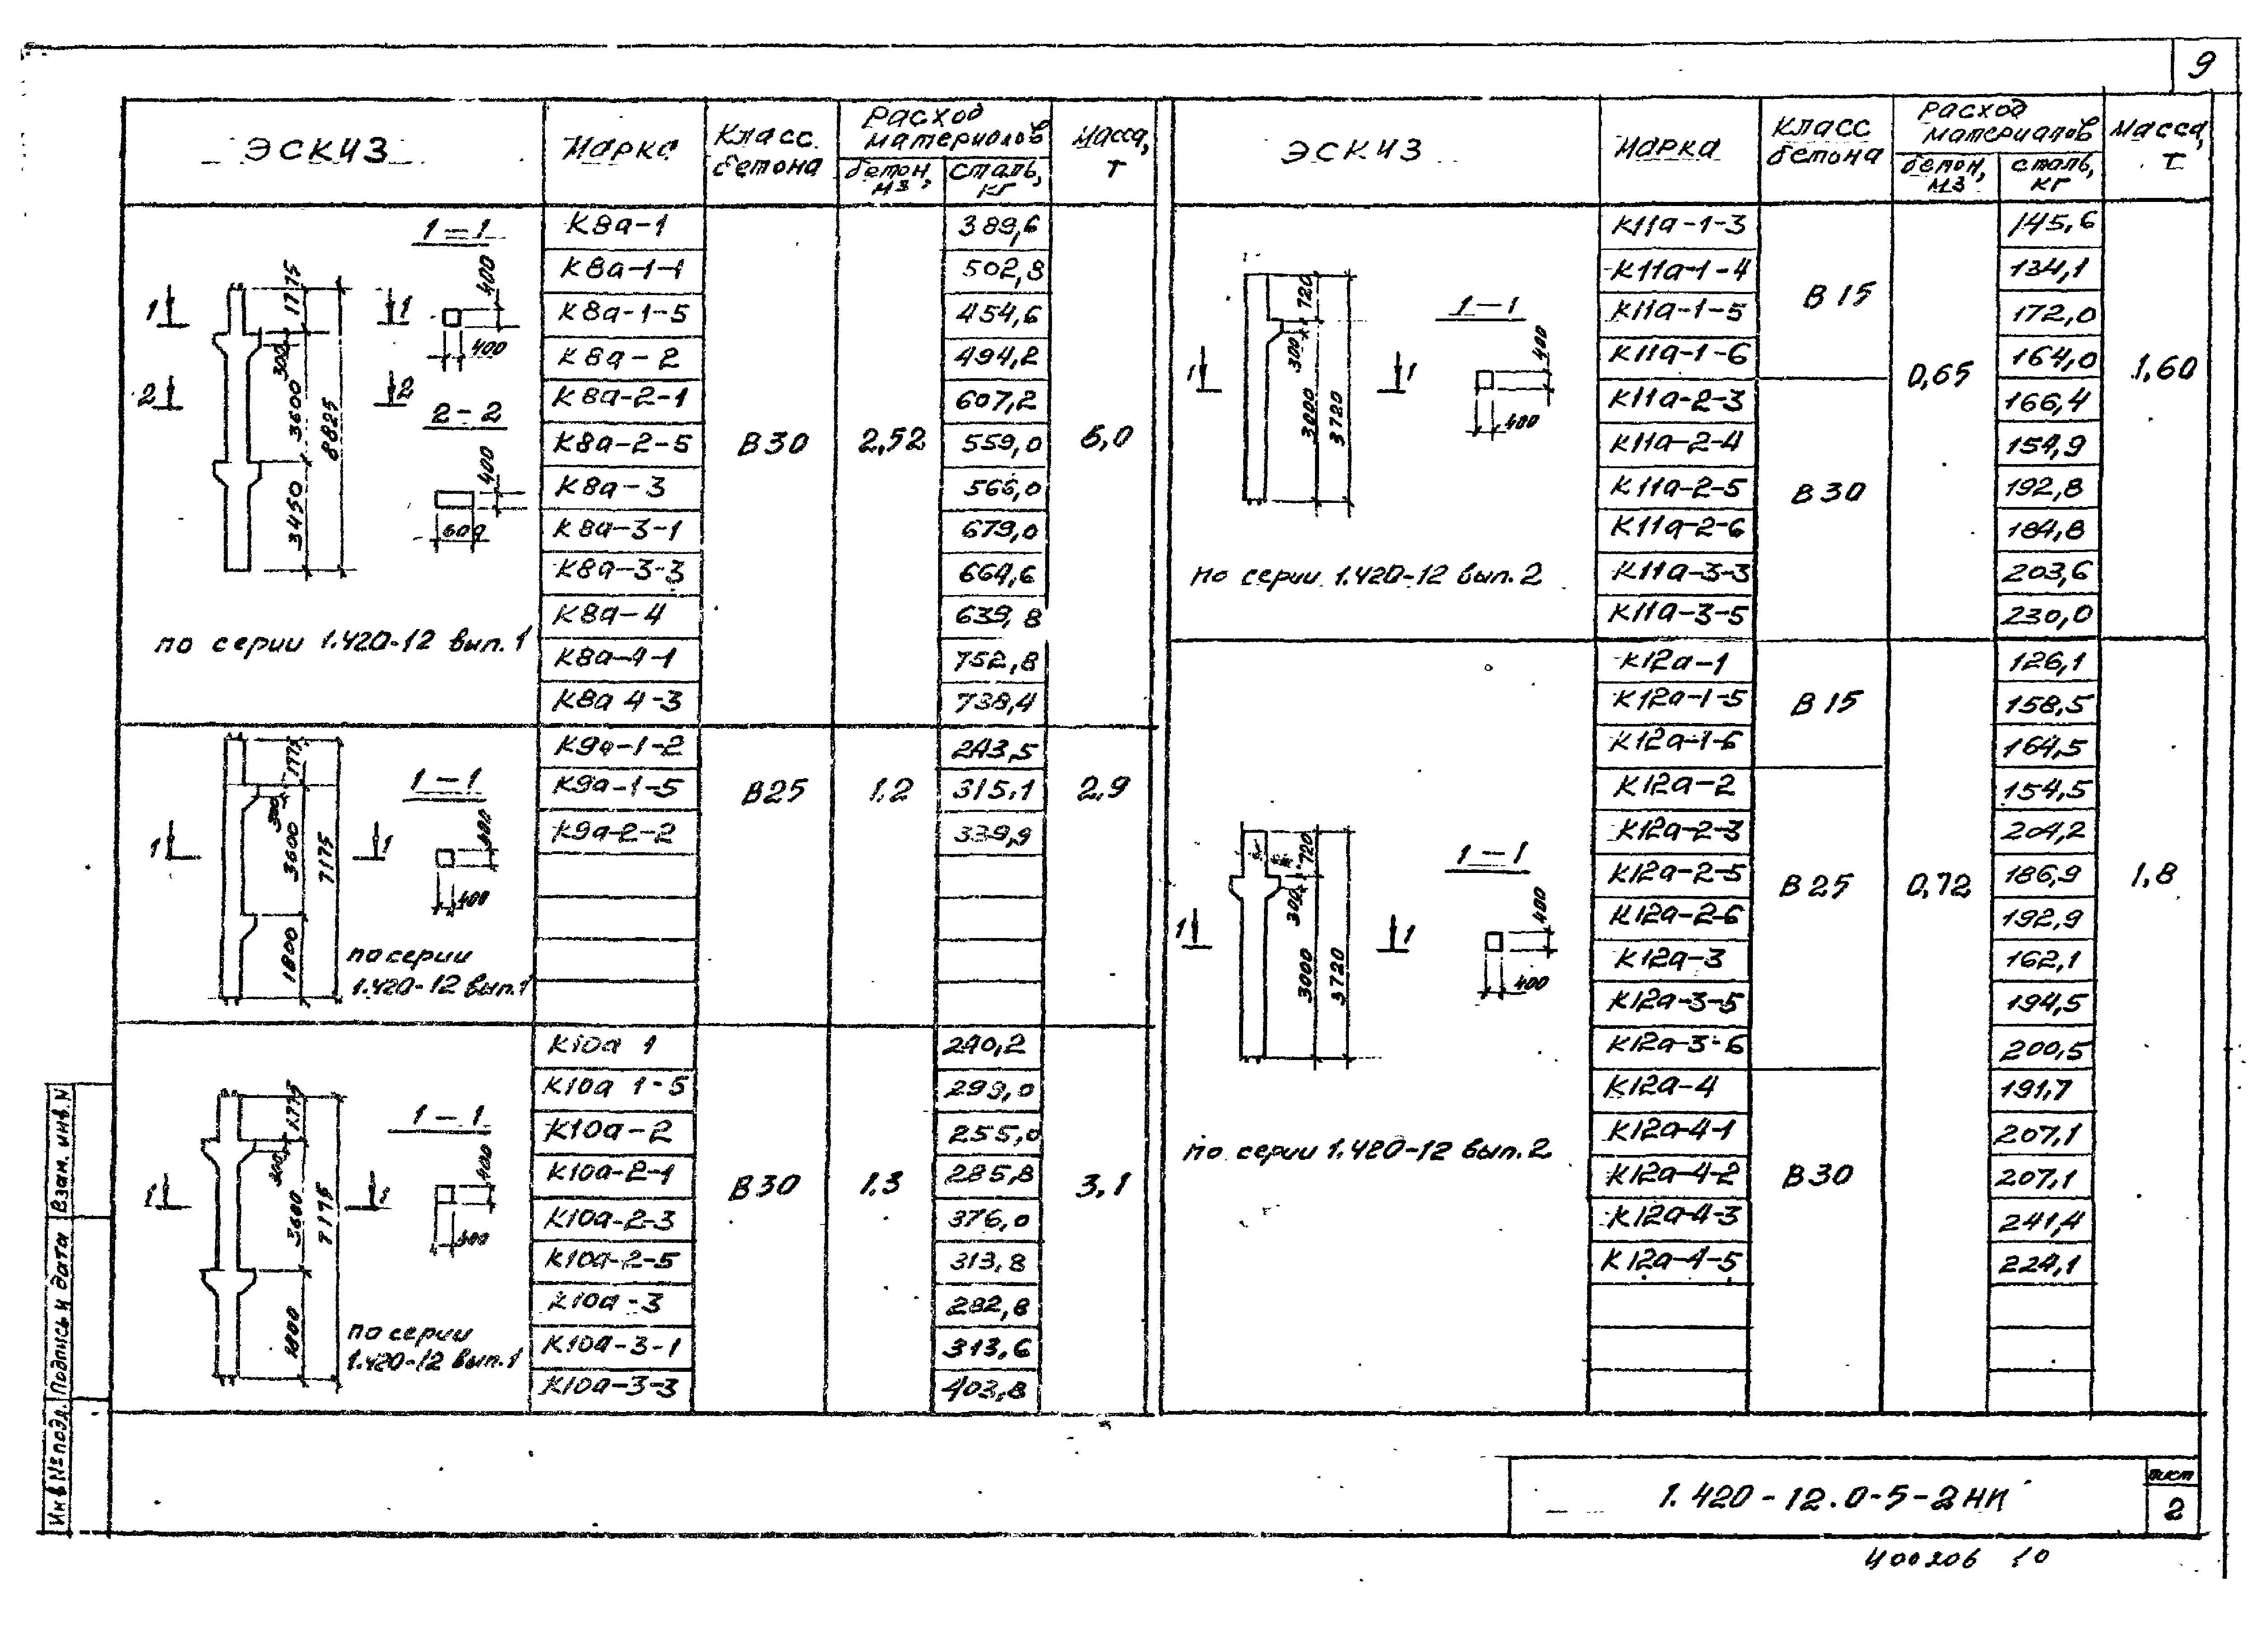 9
ЭСКИЗ Марка Класс бетона Расход материалов Масса, т
бетон, м3, сталь, кг
1-1
1 1
1775
400
400
300
2 2
3600
8825
2-2
400
600
3450
по серии 1.420-12 вып. 1
К8а-1 389,6
К8а-1-1 502,8
К8а-1-5 454,6
К8а-2 494,2
К8а-2-1 607,2
К8а-2-5 В30 2,52 559,0
К8а-3 566,0
К8а-3-1 679,0
К8а-3-3 664,6
К8а-4 639,8
К8а-4-1 752,8
К8а 4-3 738,4
1-1
1775
300
1 1
3600
7175
400
400
1800
по серии
1.420-12 вып. 1
К9а-1-2 243,5
К9а-1-5 В25 1.2 315.1 2.9
К9а-2-2 339,9
1-1
1775
300
1 1
3600
7175
400
400
1800
по серии
1.420-12 вып. 1
К10а 1 240,2
К10а 1-5 299,0
К10а-2 255,0
К10а-2-1 В30 1.3 285,8 3,1
К10а-2-3 376,0
К10а-2-5 313,8
К10а-3 282,8
К10а-3-1 313,6
К10а-3-3 403,8
ЭСКИЗ Марка Класс бетона Расход материалов Масса, т
бетон, м3 сталь, кг
720
1-1
300
1 1
3000
3720
400
400
по серии 1.420-12 вып. 2
К11а-1-3 145,6
К11а-1-4 В15 134,1
К11а-1-5 172,0
К11а-1-6 0,65 164,0 1,60
К11а-2-3 166,4
К11а-2-4 154,9
К11а-2-5 В30 192,8
К11а-2-6 184,8
К11а-3-3 203,6
К11а-3-5 230,0
720
1-1
300
1 1
3000
3720
400
400
по серии 1.420-12 вып. 2
К12а-1 126,1
К12а-1-5 В15 158,5
К12а-1-6 164,5
К12а-2 154,5
К12а-2-3 204,2
К12а-2-5 В25 0,72 186,9 1,8
К12а-2-6 192,9
К12а-3 162,1
К12а-3-5 194,5
К12а-3-6 200,5
К12а-4 191,7
К12а-4-1 207,1
К12а-4-2 В30 207,1
К12а-4-3 241,4
К12а-4-5 224,1
Инв № подл. Подпись и дата Взам. инв. N
1.420-12.0-5-2НИ
лист
2
10